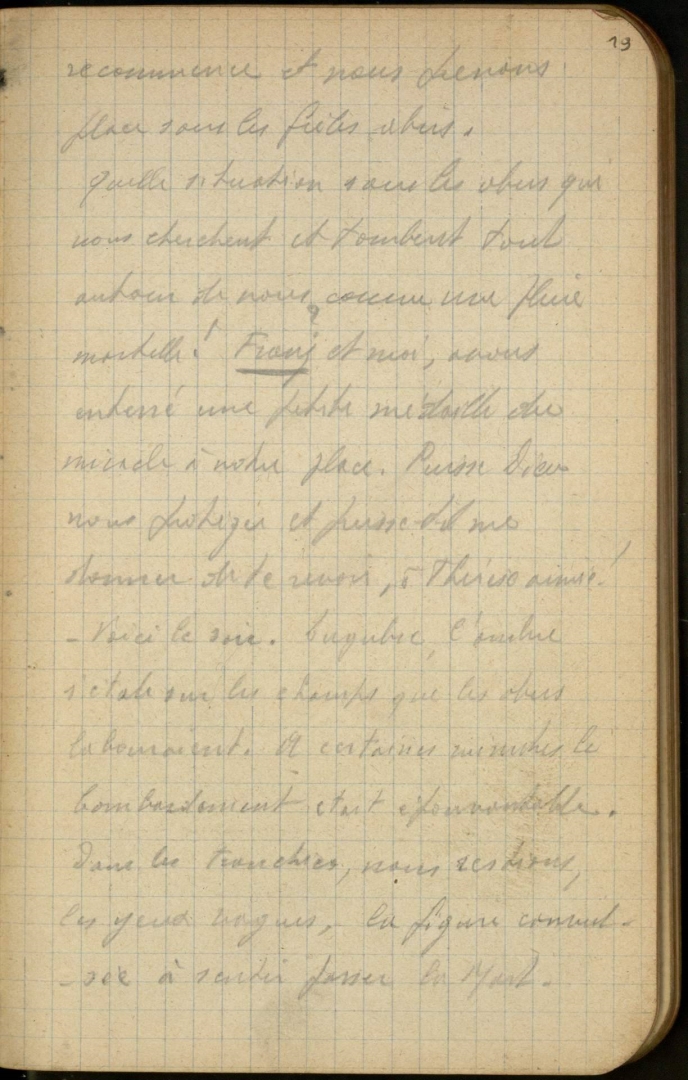 19
recommence et nous prenons
place sous les frêles abris.
Quelle situation sous les obus qui
nous cherchent et tombent tout
autour de nous comme une pluie
?
mortelle! Franz et moi, avons
enterré une petite médaille du
miracle à notre place. Puisse Dieu
nous protéger et puisse-t-il me
donner de te revoir, ô Thérèse aimée!
- Voici le soir. Lugubre, l'ombre
s'étale sur les champs que les obus
labouraient. A certaines minutes le
bombardement était épouvantable.
Dans les tranchées, nous restions,
les yeux vagues, la figure convul-
-sée à sentir passer la Mort.